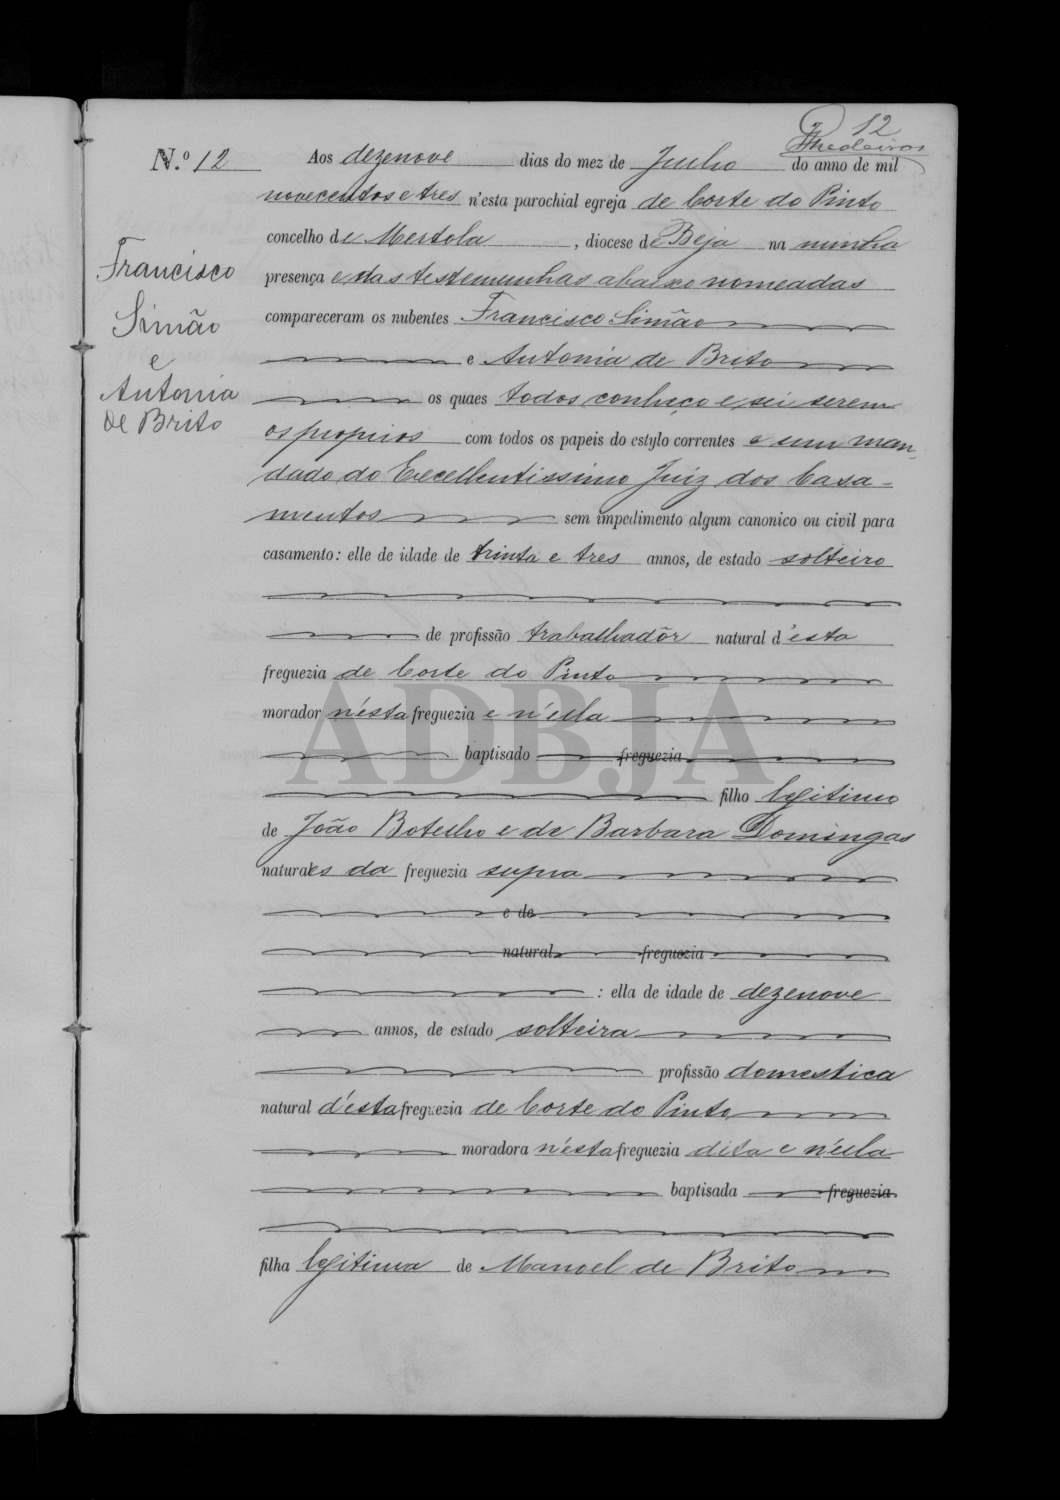 12
Medeiros
N.º 12
Francisco
Simão
e
Antonia
de Brito
Aos dezenove dias do mez de Junho do anno de mil
novecentos e tres n'esta parochial egreja de Corte do Pinto
concelho de Mertola, diocese de Beja na minha
presença e das testemunhas abaixo nomeadas
compareceram os nubentes Francisco Simão
e Antonia de Brito
os quaes todos conheço e sei serem
os proprios com todos os papeis do estylo correntes e um man-
dado do Excellentissimo Juiz dos Casa-
mentos sem impedimento algum canonico ou civil para
casamento: elle de idade de trinta e tres annos, de estado solteiro
de profissão trabalhadôr natural d'esta
freguezia de Corte do Pinto
morador n'esta freguezia e n'ella
baptisado freguezia
filho legitimo
de João Botelho e de Barbara Domingas
naturaes da freguezia supra
e de
natural freguezia
: ella de idade de dezenove
annos, de estado solteira
profissão domestica
natural d'esta freguezia de Corte do Pinto
moradora n'esta freguezia dita e n'ella
baptisada freguezia
filha legitima de Manoel de Brito
ADBJA